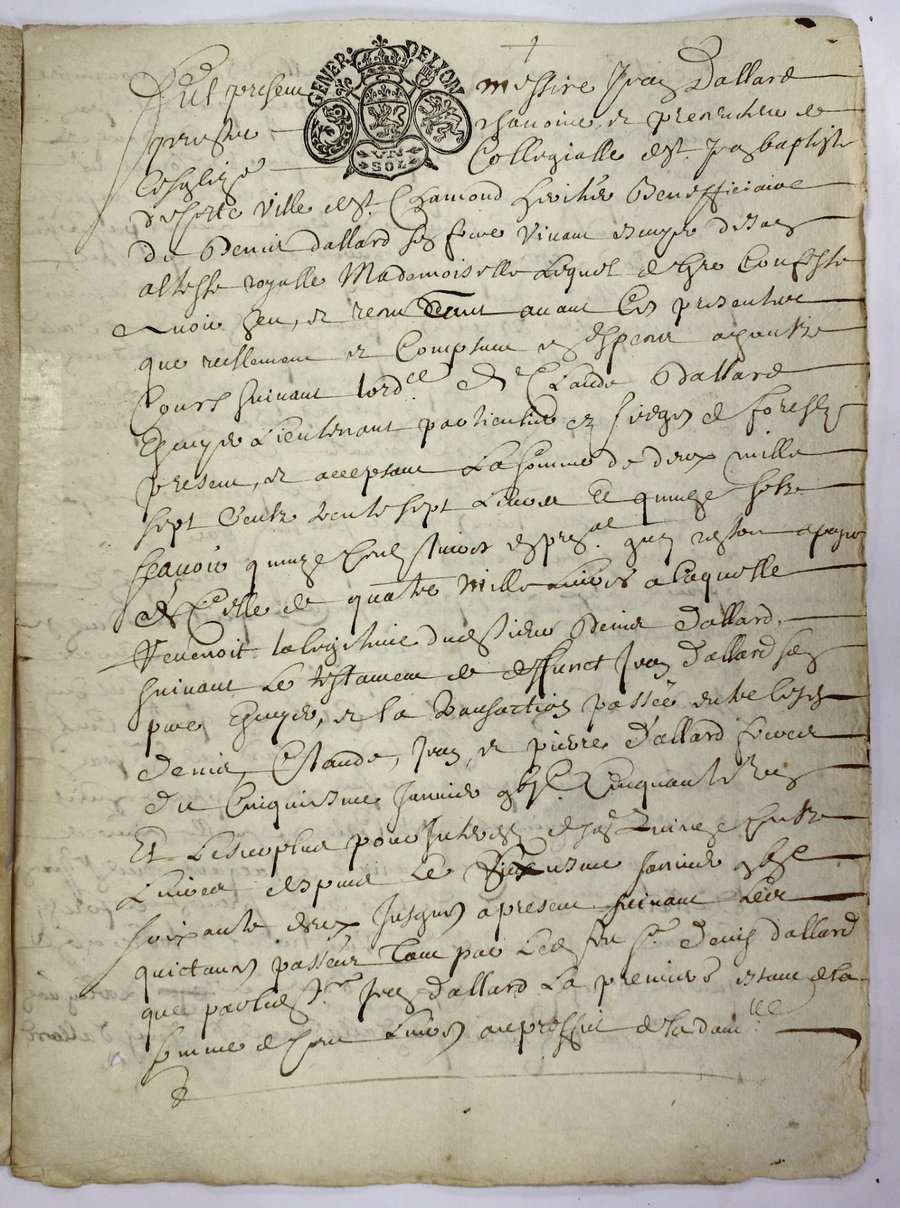 GENER. DE LYON
UN SOL
Fut present messire Jean Dallard
prestre chanoine, et
Collegialle de st. Jean baptiste
ville de st. Chamond heritier Beneficiaire
de Denis dallard son frere vivant escuyer de son
altesse royalle Mademoiselle Lequel de gre Confesse
avoir heu, et receu avant Ces presentes
que reellement et Comptant en espece ayantz
Cours suivant lordce de Claude Dallard
Escuyer Lieutenant particulier es sieges de forestz
present, et acceptant La somme de deux mille
sept Centz trente sept Livres Et quinze solz
scavoir quinze Cens Livres de pral. quy restoit a payer
de Celle de quatre Mille Livres a laquelle
revenoit la legitime dud sieur Denis Dallard,
suivant Le testament de deffunct Jean Dallard son
pere Escuyer, et la transaction passée entre lesds
Denis, Claude, Jean, et pierre D'allard freres
du Cinquiesme Janvier gbic. Cinquante
Et Le surplus pour Interest desd quinze Centz
Livres despuis Le Janvier gbic
soixante deux Jusques a present suivant Les
quictances passées Tant par Led feu sr. Denis dallard
que par led sr. Jean dallard La premiere estant de la
somme de Cent Livres au proffit de lad damlle